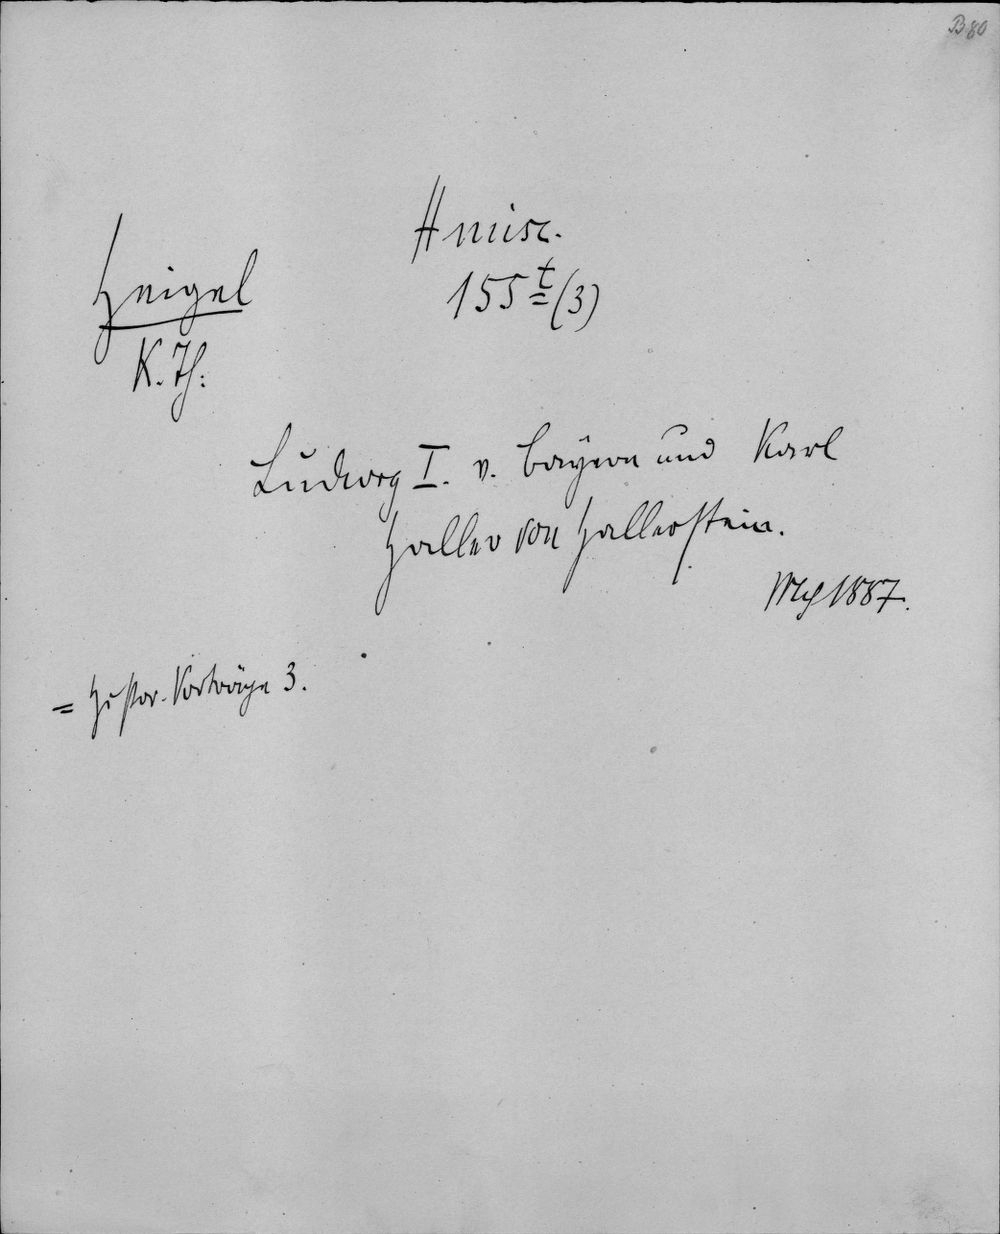 B 80
H misc.
155 t (3)
Heigel
K. Th:
Ludwig I. v. Bayern und Karl
Haller von Hallerstein.
Mch 1887.
= Histor. Vorträge 3.